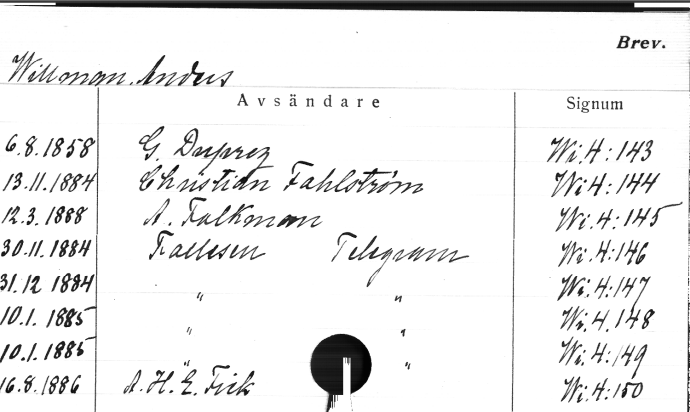 Brev.
Willman, Anders
Avsändare Signum
6.8.1858 G. Duprez Wi.4:143
13.11.1884 Christian Fahlström Wi.4:144
12.3.1888 A. Falkman Wi.4:145
30.11.1884 Fallesen Telegram Wi.4:146
31.12 1884 " " Wi.4:147
10.1.1885 " " Wi.4.148
10.1.1885 " " Wi.4:149
16.8.1886 A.H.E. Fick Wi.4:150